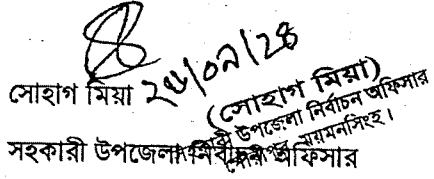 সোহাগ মিয়া
(সোহাগ মিয়া)
উপজেলা নির্বাচন অফিসার
ময়মনসিংহ।
সহকারী উপজেলা নির্বাচন অফিসার